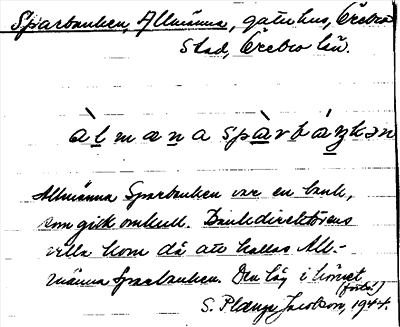 Sparbanken, Allmänna, gatuhus, Örebro
stad, Örebro län.
àlmæna spàrbáŋkən
Allmänna Sparbanken var en bank,
som gick omkull. Bankdirektörens
villa kom då att kallas All-
männa Sparbanken. Den låg i hörnet
S. Plange Jacobson, 1944.